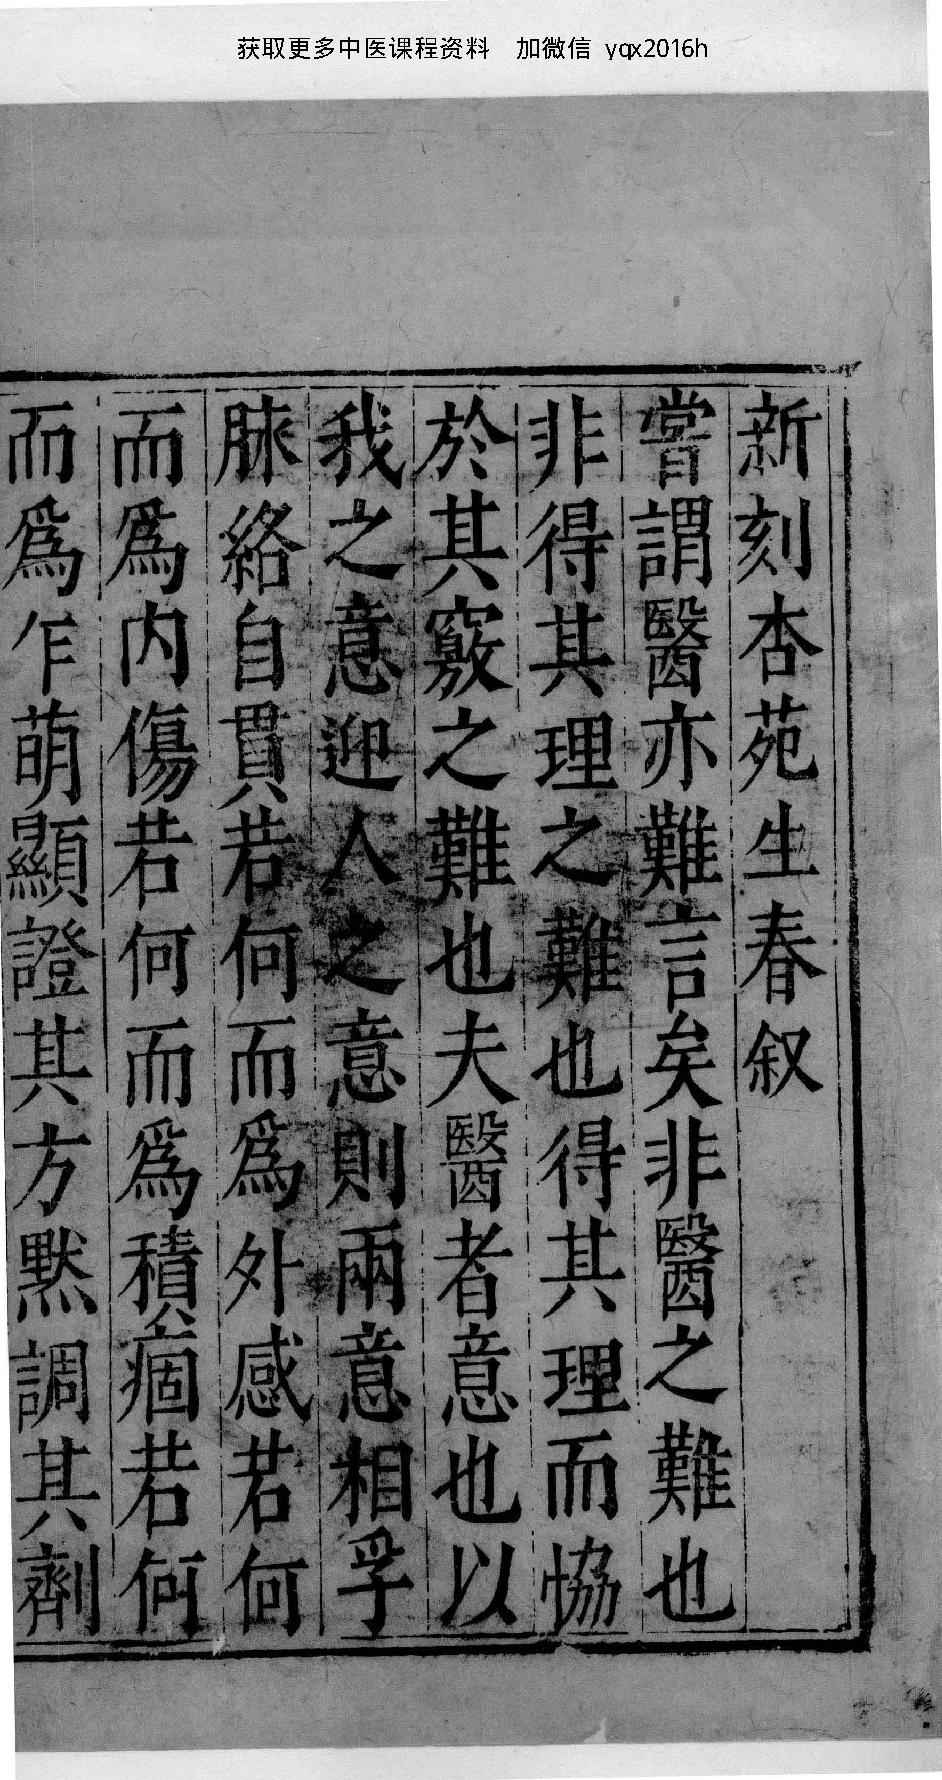 获取更多中医课程资料 加微信 yqx2016h
新刻杏苑生春叙
嘗謂醫亦難言矣非醫之難也
非得其理之難也得其理而協
於其竅之難也夫醫者意也以
我之意迎人之意則兩意相孚
脉絡自貫若何而爲外感若何
而爲内傷若何而爲積痼若何
而爲乍萌顯證其方黙調其劑